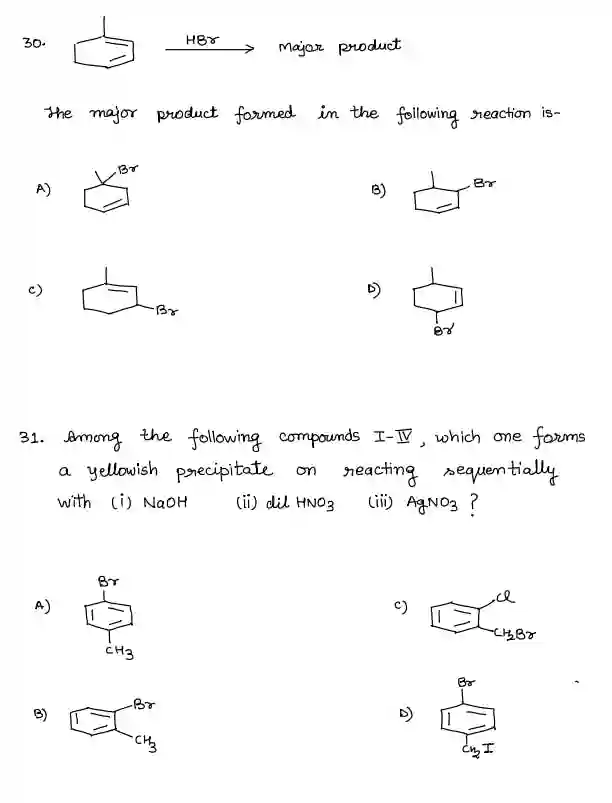 30. HBr Major product
The major product formed in the following reaction is-
A) Br B) Br
C) Br D) Br
31. Among the following compounds I-IV, which one forms
a yellowish precipitate on reacting sequentially
with (i) NaOH (ii) dil HNO3 (iii) AgNO3 ?
A) Br CH3 C) Cl CH2Br
B) Br CH3 D) Br CH2 I